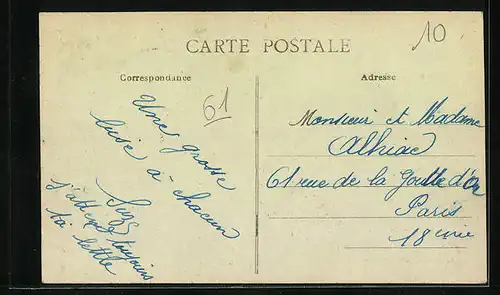 CARTE POSTALE
10
Correspondance
61
Une grosse
bise à chacun
Suze
j'attends toujours
ta lettre
Adresse
Monsieur et Madame
Alhiac
61 rue de la Goutte d'Or
Paris
18eme